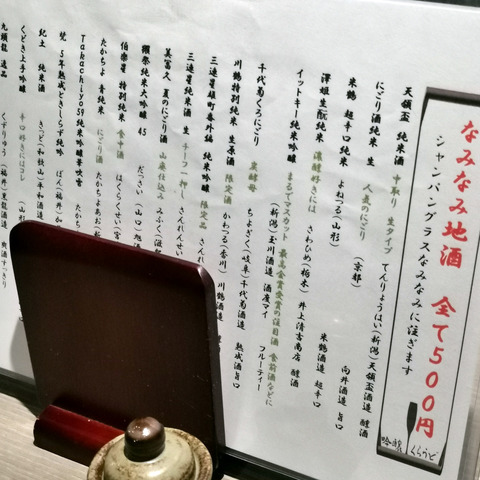 なみなみ地酒 全て500円
シャンパングラスなみなみに注ぎます
吟醸 くらうど
天領盃 純米酒 中取り 生タイプ てんりょうはい(新潟)天領盃酒造 醇酒
にごり酒純米 生 人気のにごり (京都) 向井酒造 旨口
米鶴 超辛口 純米 よねつる(山形) 米鶴酒造 超辛口
澤姫 生酛純米 濃醇好きには さわひめ(栃木)井上清吉商店 醇酒
イットキー純米吟醸 まるでマスカット 最高金賞受賞の注目酒 食前酒などに
(新潟)玉川酒造 酒度マイ フルーティー
千代菊くろにごり 黒酵母 ちよぎく(岐阜)千代菊酒造 熟成酒旨口
川鶴特別純米 生原酒 限定酒 かわつる(香川)川鶴酒造
三連星雄町番外編 純米吟醸 限定品 さんれ
三連星純米酒 生 チーフ一押し さんれんせい
美冨久 夏のにごり酒 山廃仕込み みふく(滋
獺祭純米大吟醸 45 だっさい(山口・旭
伯楽星 特別純米 食中酒 はくらくせい(宮
Takachiyo59純米吟醸華吹雪 たかち
たかちよ 青純米 にごり酒 たかちよあお(新
梵 5年熟成ときしらず純吟 ぼん(福井)
紀土 純米酒 きっど(和歌山)平和酒造
くどき上手吟醸 辛口好きにはコレ (山形
九頭龍 逸品 くずりゅう(福井)黒龍酒造 爽酒すっきり